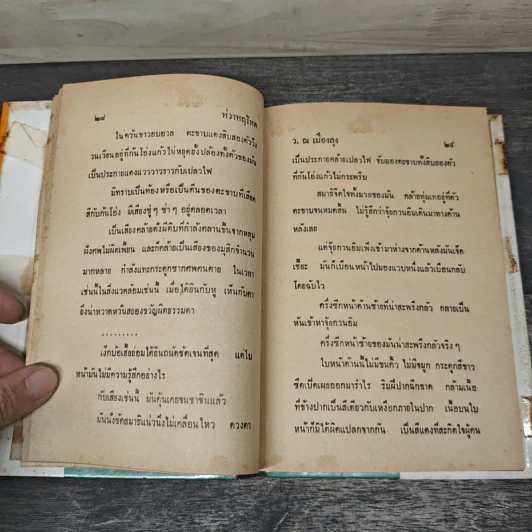 ๒๘ ห่วงพฤโหด
ในควันขาวอบอวล ตะขาบแดงสิบสองตัววิ่ง
วนเวียนอยู่ที่ก้นโอ่งแก้วไม่หยุดยั้งปล้องทั้งตัวของมัน
เป็นประกายแดงแวววาวราวกับเปลวไฟ
มิทราบเป็นท้องหรือเป็นตีนของตะขาบที่เสียด
สีกับก้นโอ่ง มีเสียงซู่ ๆ ซ่า ๆ อยู่ตลอดเวลา
เป็นเสียงคล้ายดั่งผีดิบที่กำลังคลานขึ้นจากหลุม
ฝังศพไม่ผิดเพี้ยน และก็คล้ายเป็นเสียงของมูสิกจำนวน
มากหลาย กำลังแทะกระดูกซากศพคนตาย ในเวลา
เช่นนี้ในสิ่งแวดล้อมเช่นนี้ เมื่อได้ยินกับหู เห็นกับตา
ยิ่งน่าหวาดหวั่นสยองขวัญผิดธรรมดา
.........
ผู้คนใบ
หน้ามันไม่มีความรู้สึกอย่างไร
กับเสียงเช่นนี้ มันคุ้นเคยจนชาชินแล้ว
มันนั่งขัดสมาธิแน่วนิ่งไม่เคลื่อนไหว ดวงตา
ว. ณ เมืองลุง ๒๙
เป็นประกายคล้ายเปลวไฟ จับมองตะขาบทั้งสิบสองตัว
ที่ก้นโอ่งแก้วไม่กะพริบ
สมาธิจิตใจทั้งมวลของมัน คล้ายทุ่มเทอยู่ที่ตัว
ตะขาบจนหมดสิ้น ไม่รู้สึกว่าจุ้ยกวนอิมเดินมาทางด้าน
หลังเลย
แต่จุ้ยกวนอิมเพิ่งเข้ามาห่างจากด้านหลังมันเจ็ด
เชียะ มันก็เบือนหน้าไปมองแวบหนึ่งแล้วเบือนกลับ
โดยฉับไว
ครึ่งซีกหน้าด้านซ้ายที่น่าสะพรึงกลัว กลายเป็น
หันเข้าหาจุ้ยกวนอิม
ครึ่งซีกหน้าซ้ายของมันน่าสะพรึงกลัวจริง ๆ
ใบหน้าด้านนี้ไม่มีขนคิ้ว ไม่มีจมูก กระดูกสีขาว
ซีดเปิดเผยออกมารำไร ริมฝีปากฉีกขาด กล้ามเนื้อ
ที่ข้างปากเป็นสีเดียวกับเหงือกภายในปาก เนื้อบนใบ
หน้าก็มิได้ผิดแปลกจากกัน เป็นสีแดงที่สะกิดใจผู้คน